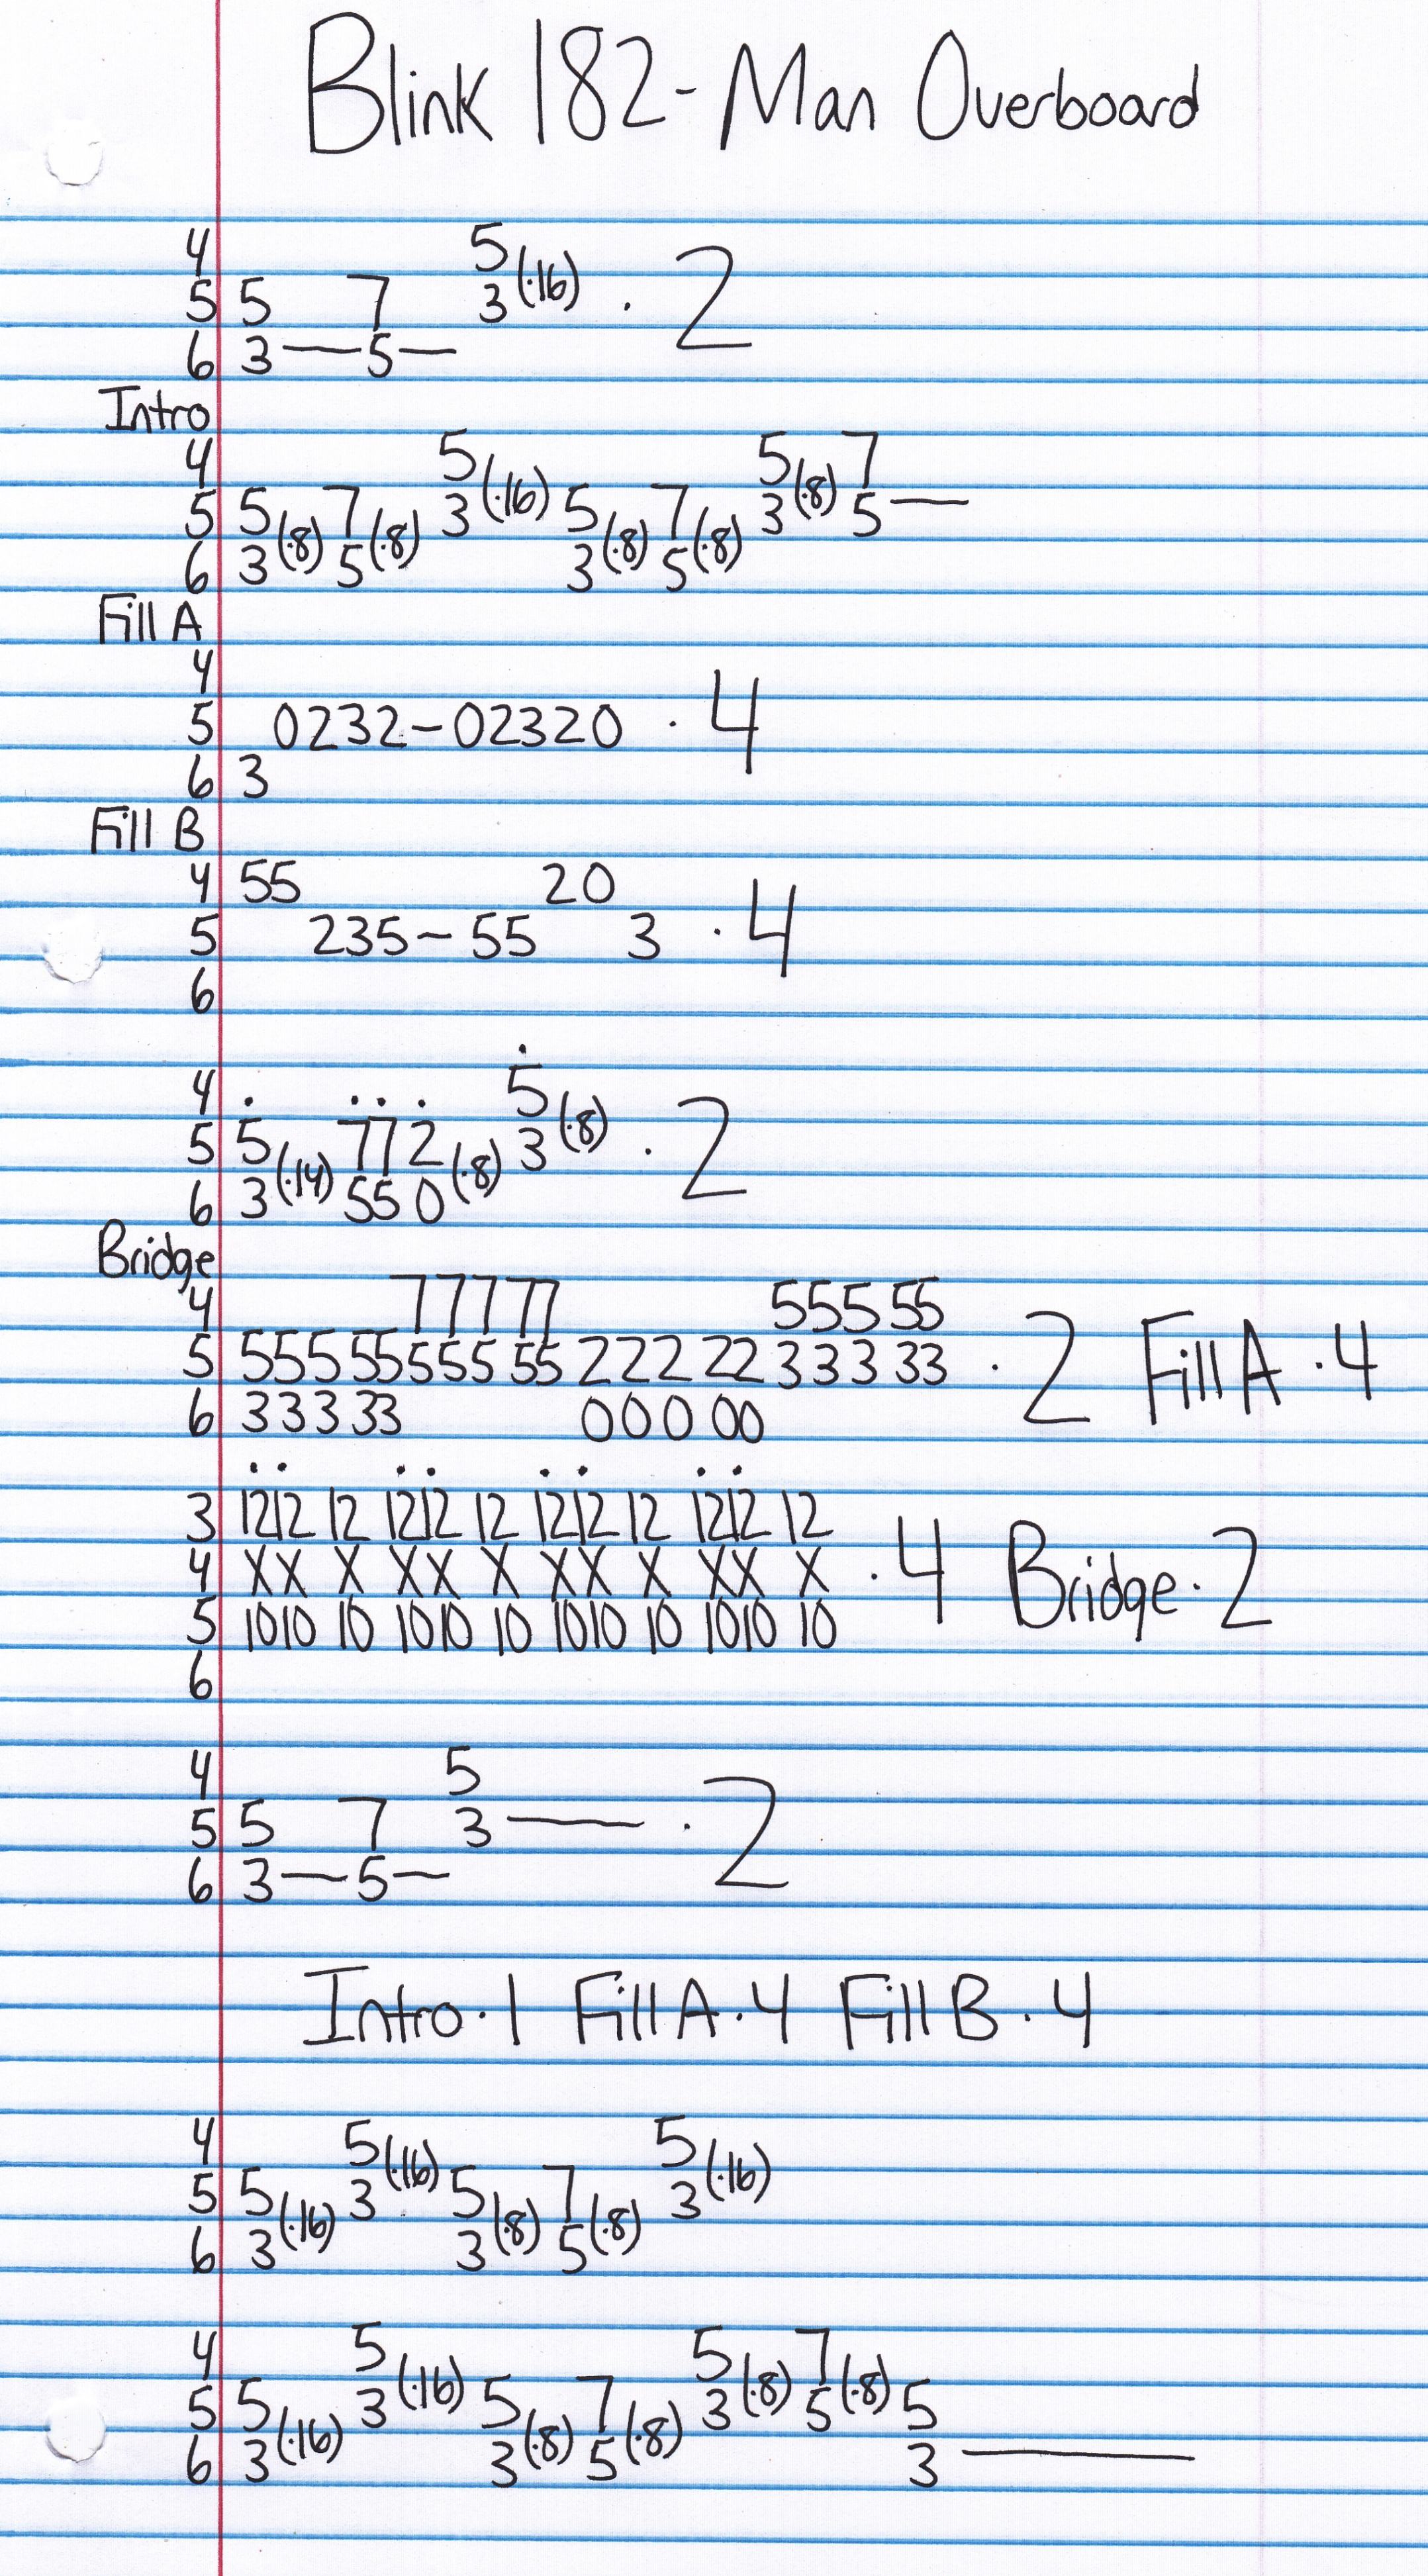 Blink 182 - Man Overboard
4 5(·16)
5 5 7 3 · 2
6 3—5—
Intro
4 5(·16) 5(·8) 7
5 5(·8) 7(·8) 3 5 7 3 5—
6 3 5 3(·8) 5(·8)
Fill A
4
5 0232-02320 · 4
6 3
Fill B
4 55 20
5 235-55 3 · 4
6
. ... .
4 5(·8)
5 5 772 3 · 2
6 3(·14) 550(·8)
Bridge
4 77777 55555
5 55555 55555 22222 33333 · 2 Fill A · 4
6 33333 00000
.. .. .. ..
3 1212 12 1212 12 1212 12 1212 12
4 XX X XX X XX X XX X · 4 Bridge · 2
5 1010 10 1010 10 1010 10 1010 10
6
4 5
5 5 7 3— · 2
6 3—5—
Intro · 1 Fill A · 4 Fill B · 4
4 5(·16) 5(·16)
5 5 3 5 7 3
6 3(·16) 3(·8) 5(·8)
4 5(·16) 5(·8) 7(·8)
5 5 3 5 7 3 5 5
6 3(·16) 3(·8) 5(·8) 3—